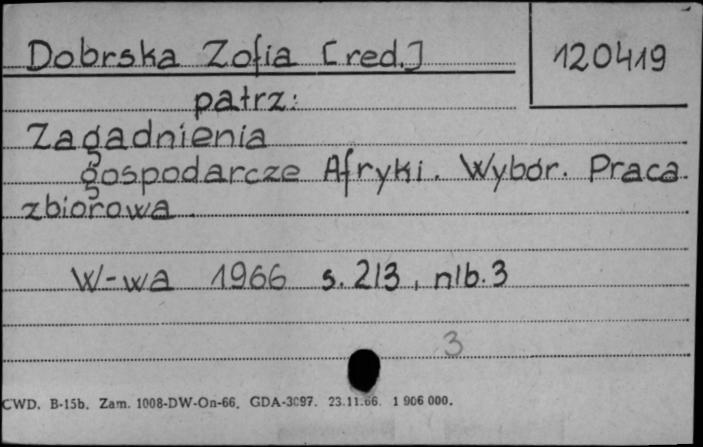 Dobrska Zofia [red.]
120419
patrz:
Zagadnienia
gospodarcze Afryki. Wybór. Praca
zbiorowa.
W-wa 1966 s. 213, nlb. 3
3
CWD. B-15b. Zam. 1008-DW-On-66. GDA-3097. 23.11.66. 1 906 000.